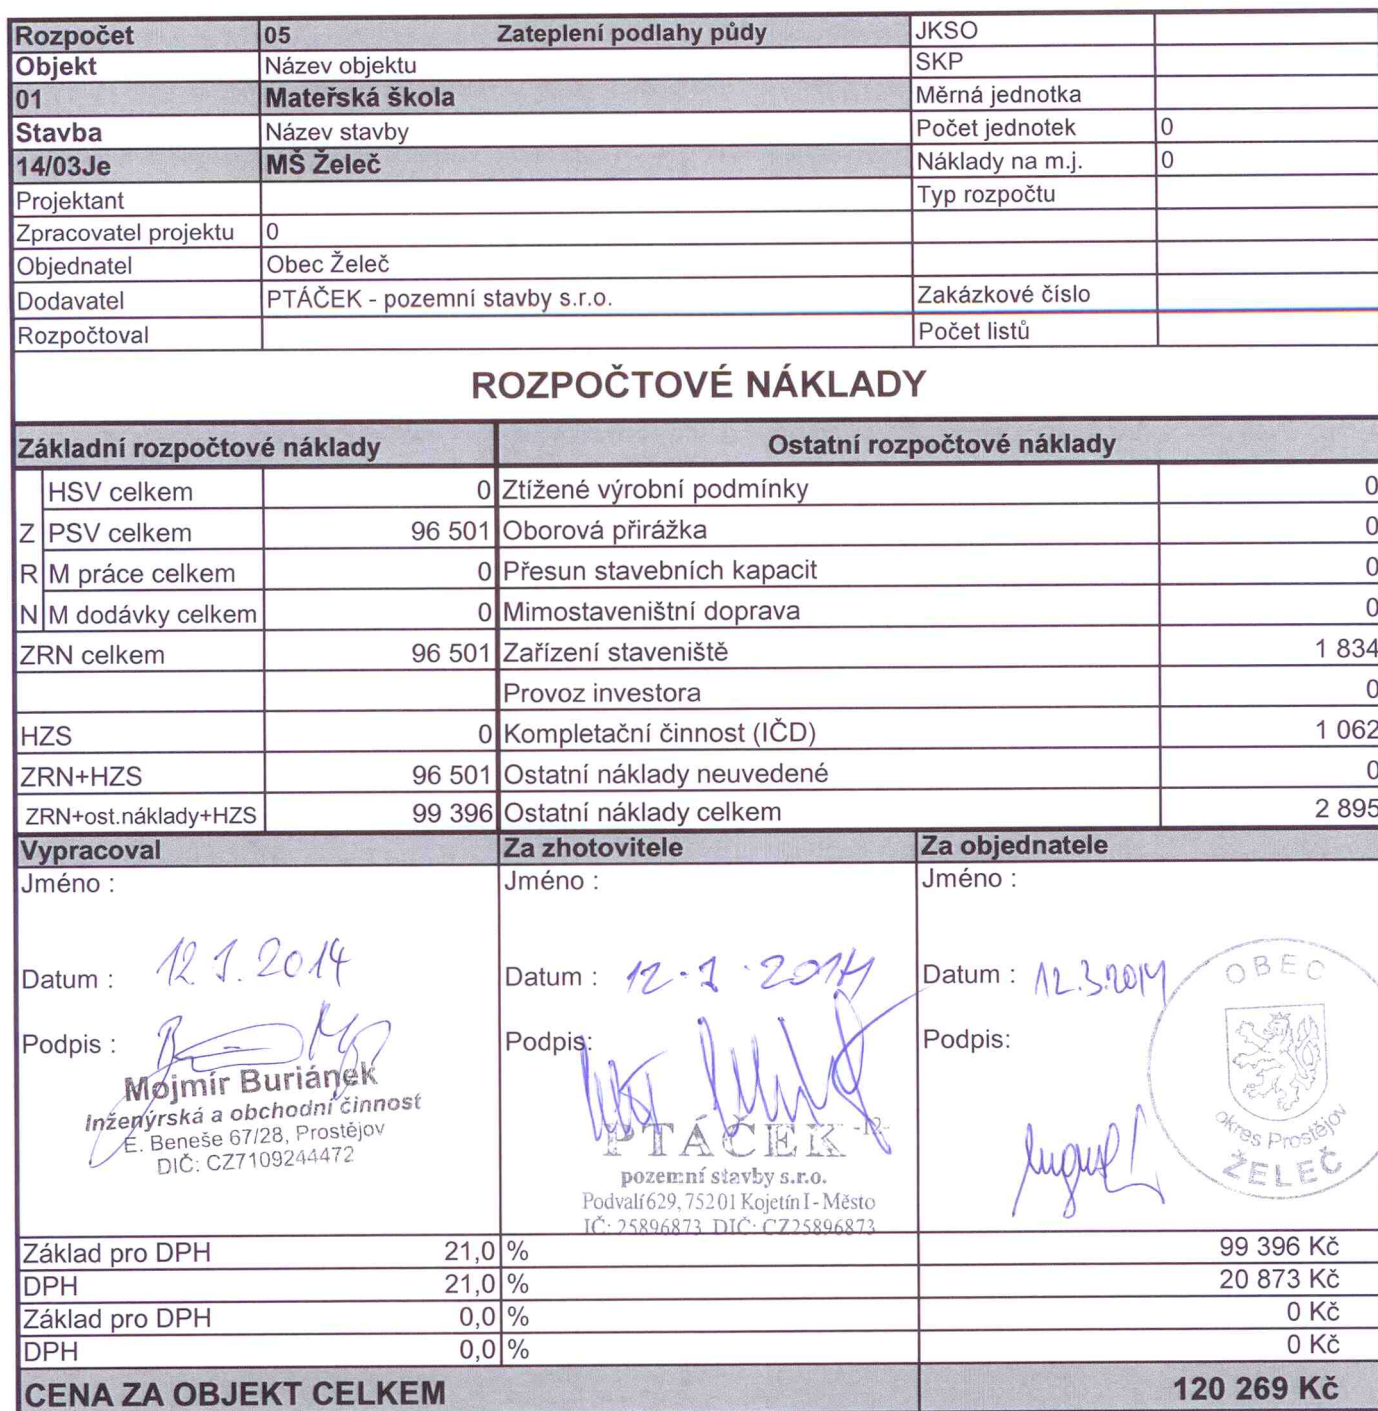 Rozpočet 05 Zateplení podlahy půdy JKSO
Objekt Název objektu SKP
01 Mateřská škola Měrná jednotka
Stavba Název stavby Počet jednotek 0
14/03Je MŠ Želeč Náklady na m.j. 0
Projektant Typ rozpočtu
Zpracovatel projektu 0
Objednatel Obec Želeč
Dodavatel PTÁČEK - pozemní stavby s.r.o. Zakázkové číslo
Rozpočtoval Počet listů
ROZPOČTOVÉ NÁKLADY
Základní rozpočtové náklady Ostatní rozpočtové náklady
HSV celkem 0 Ztížené výrobní podmínky 0
Z PSV celkem 96 501 Oborová přirážka 0
R M práce celkem 0 Přesun stavebních kapacit 0
N M dodávky celkem 0 Mimostaveništní doprava 0
ZRN celkem 96 501 Zařízení staveniště 1 834
Provoz investora 0
HZS 0 Kompletační činnost (IČD) 1 062
ZRN+HZS 96 501 Ostatní náklady neuvedené 0
ZRN+ost.náklady+HZS 99 396 Ostatní náklady celkem 2 895
Vypracoval Za zhotovitele Za objednatele
Jméno : Jméno : Jméno :
Datum : 12.3.2014 Datum : 12.3.2014 Datum : 12.3.2014
Podpis : Podpis: Podpis:
Mojmír Buriánek
Inženýrská a obchodní činnost
E. Beneše 67/28, Prostějov
DIČ: CZ7109244472
PTÁČEK
pozemní stavby s.r.o.
Podvalí 629, 752 01 Kojetín I - Město
IČ: 25896873 DIČ: CZ25896873
OBEC
okres Prostějov
ŽELEČ
Základ pro DPH 21,0 % 99 396 Kč
DPH 21,0 % 20 873 Kč
Základ pro DPH 0,0 % 0 Kč
DPH 0,0 % 0 Kč
CENA ZA OBJEKT CELKEM 120 269 Kč